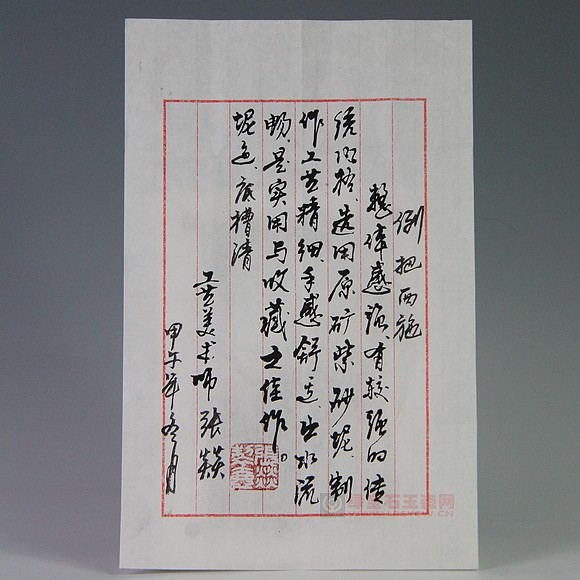 倒把西施
整体感强、有较强的传
统风格、选用原矿紫砂坭、制
作工艺精细手感舒适、出水流
畅、是实用与收藏之佳作。
坭色、底槽清
工艺美术师 张燚
甲午年冬月